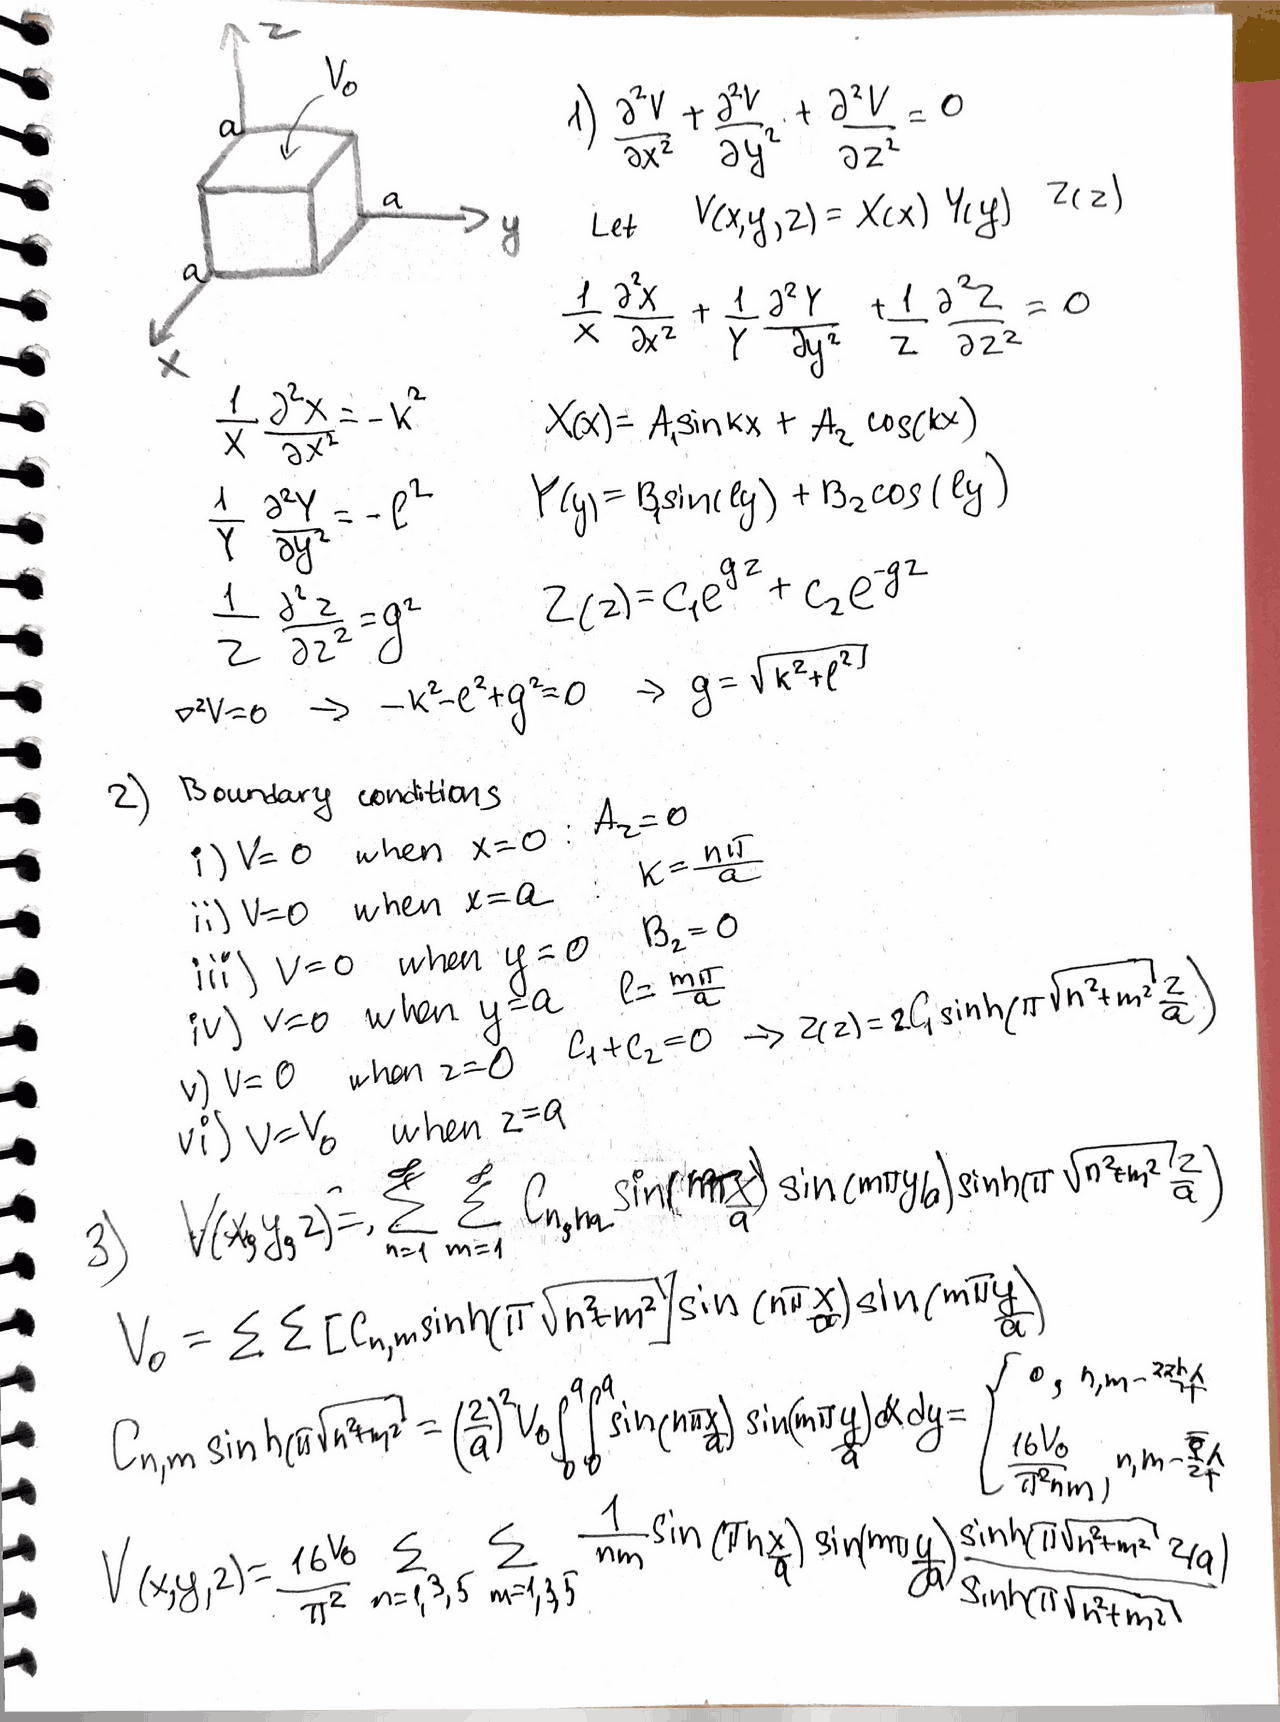 z
V₀
a
a
y
a
x
1) ∂²V/∂x² + ∂²V/∂y² + ∂²V/∂z² = 0
Let V(x,y,z) = X(x) Y(y) Z(z)
1/X ∂²X/∂x² + 1/Y ∂²Y/∂y² + 1/Z ∂²Z/∂z² = 0
1/X ∂²X/∂x² = -k² X(x) = A₁sinkx + A₂ cos(kx)
1/Y ∂²Y/∂y² = -ℓ² Y(y) = B₁sin(ℓy) + B₂cos(ℓy)
1/Z ∂²Z/∂z² = g² Z(z) = C₁e^{gz} + C₂e^{-gz}
∇²V=0 → -k²-ℓ²+g²=0 → g = √(k²+ℓ²)
2) Boundary conditions
i) V=0 when x=0 : A₂=0
ii) V=0 when x=a : k = nπ/a
iii) V=0 when y=0 B₂=0
iv) V=0 when y=a ℓ = mπ/a
v) V=0 when z=0 C₁+C₂=0 → Z(z) = 2C₁ sinh(π√(n²+m²) z/a)
vi) V=V₀ when z=a
3) V(x,y,z) = Σ_{n=1}^∞ Σ_{m=1}^∞ C_{n,m} sin(nπx/a) sin(mπy/a) sinh(π√(n²+m²) z/a)
V₀ = Σ Σ [C_{n,m} sinh(π√(n²+m²)] sin(nπ x/a) sin(mπ y/a)
C_{n,m} sinh(π√(n²+m²) = (2/a)² V₀ ∫₀^a ∫₀^a sin(nπx/a) sin(mπy/a) dx dy = { 0, n,m - 짝수
16V₀/π²nm, n,m - 홀수
V(x,y,z) = 16V₀/π² Σ_{n=1,3,5} Σ_{m=1,3,5} 1/nm sin(πn x/a) sin(mπ y/a) sinh(π√(n²+m²) z/a)/sinh(π√(n²+m²)